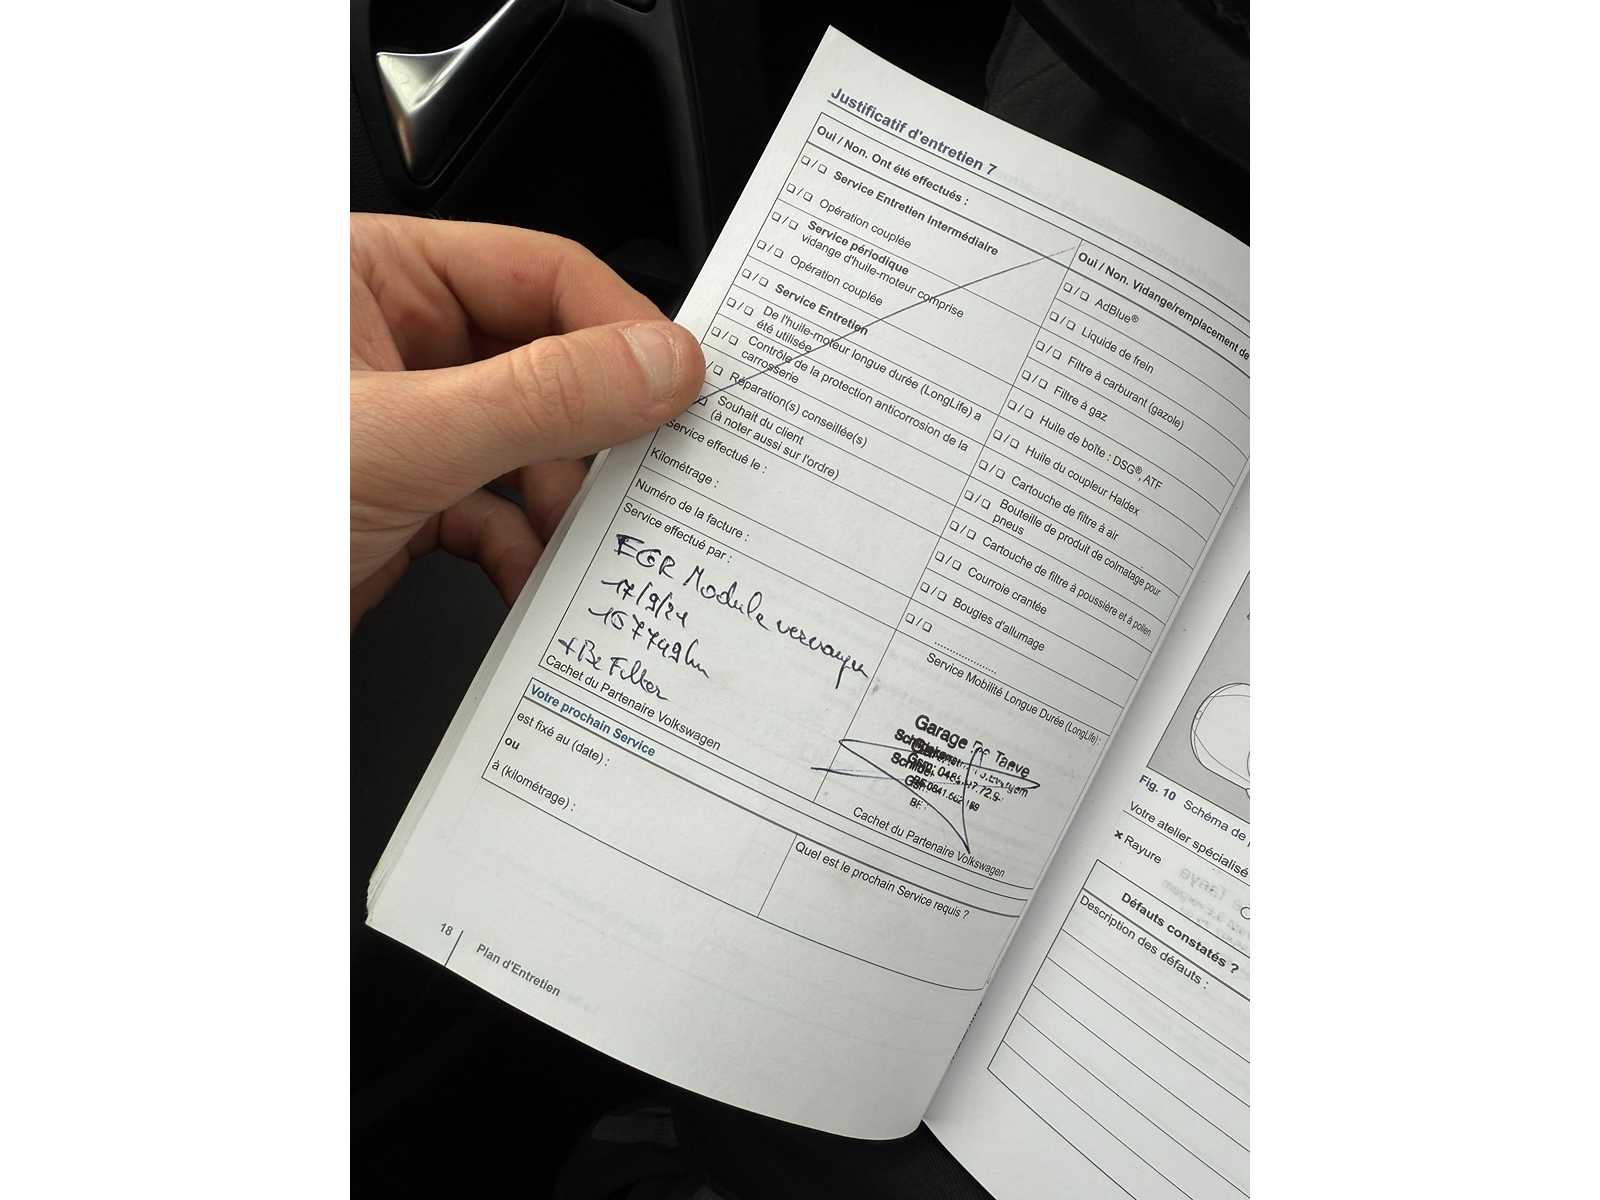 Justificatif d'entretien 7
Oui / Non. Ont été effectués :
❑ / ❑ Service Entretien Intermédiaire
❑ / ❑ Opération couplée
❑ / ❑ Service périodique
vidange d'huile-moteur comprise
❑ / ❑ Opération couplée
❑ / ❑ Service Entretien
❑ / ❑ De l'huile-moteur longue durée (LongLife) a
été utilisée
❑ / ❑ Contrôle de la protection anticorrosion de la
carrosserie
/ ❑ Réparation(s) conseillée(s)
❑ Souhait du client
(à noter aussi sur l'ordre)
Service effectué le :
Kilométrage :
Numéro de la facture :
Service effectué par :
EGR Module vervangen
17/9/21
157749km
Filter
Cachet du Partenaire Volkswagen
Oui / Non. Vidange/remplacement de
❑ / ❑ AdBlue®
❑ / ❑ Liquide de frein
❑ / ❑ Filtre à carburant (gazole)
❑ / ❑ Filtre à gaz
❑ / ❑ Huile de boîte : DSG®, ATF
❑ / ❑ Huile du coupleur Haldex
❑ / ❑ Cartouche de filtre à air
❑ / ❑ Bouteille de produit de colmatage pour
pneus
❑ / ❑ Cartouche de filtre à poussière et à pollen
❑ / ❑ Courroie crantée
❑ / ❑ Bougies d'allumage
❑ / ❑ ....................
Service Mobilité Longue Durée (LongLife):
Garage
Cachet du Partenaire Volkswagen
Votre prochain Service
est fixé au (date) :
ou
à (kilométrage) :
Quel est le prochain Service requis ?
18
Plan d'Entretien
Fig. 10 Schéma de
Votre atelier spécialisé
✖ Rayure
Défauts constatés ?
Description des défauts :